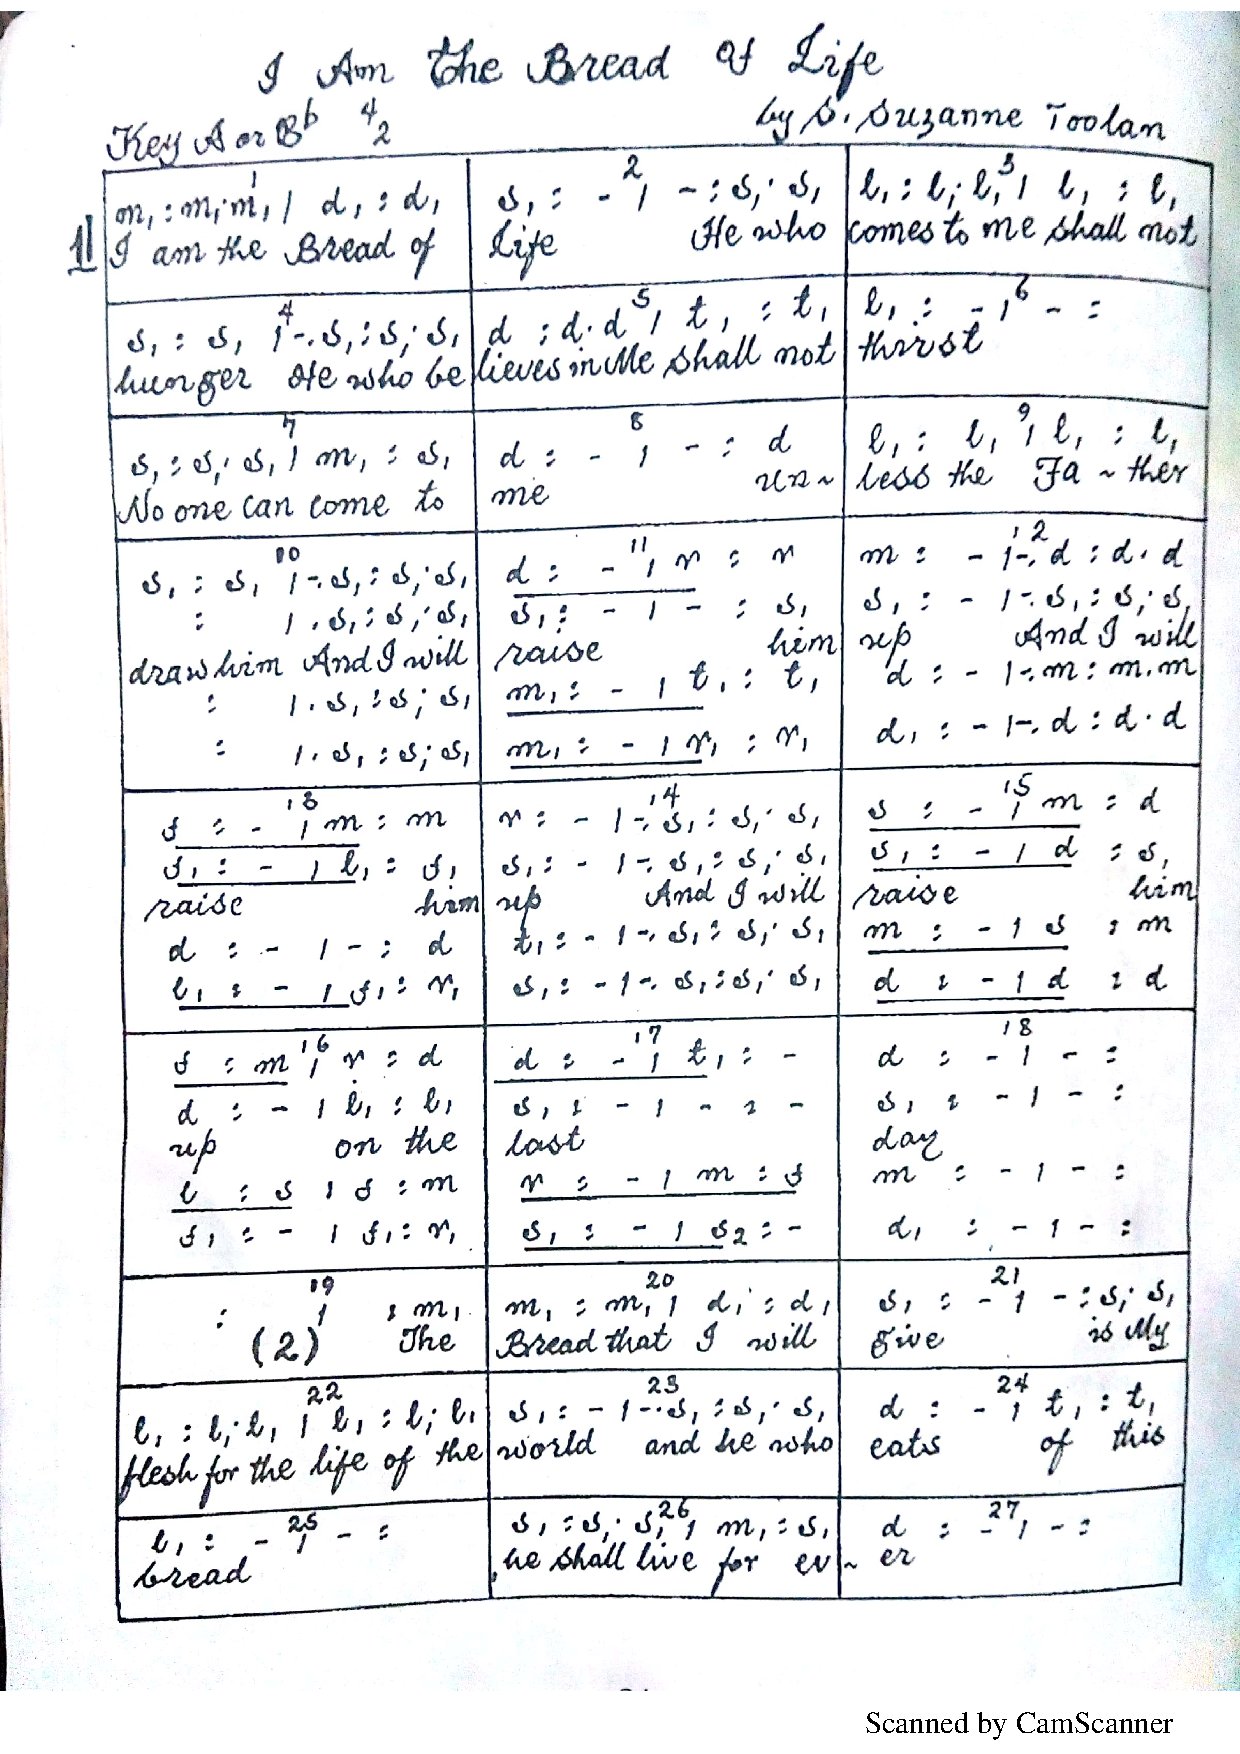 I Am The Bread Of Life
Key A or Bb 4/2
by S. Suzanne Toolan
1 2 3
1 m, : m, . m, / d, : d, s, : - / - : s, . s, l, : l, . l, / l, : l,
I am the Bread of Life He who comes to me shall not
4 5 6
s, : s, / - . s, : s, . s, d : d . d / t, : t, l, : - / - :
hunger He who be lieves in Me shall not thirst
7 8 9
s, : s, . s, / m, : s, d : - / - : d l, : l, / l, : l,
No one can come to me un~ less the Fa ~ ther
10 11 12
s, : s, / - . s, : s, . s, d : - / r : r m : - / - . d : d . d
: / . s, : s, . s, s, : - / - : s, s, : - / - . s, : s, . s,
draw him And I will raise him up And I will
: / . s, : s, . s, m, : - / t, : t, d : - / - . m : m . m
: / . s, : s, . s, m, : - / r, : r, d, : - / - . d : d . d
13 14 15
f : - / m : m r : - / - . s, : s, . s, s : - / m : d
f, : - / l, : f, s, : - / - . s, : s, . s, s, : - / d : s,
raise him up And I will raise him
d : - / - : d t, : - / - . s, : s, . s, m : - / s : m
l, : - / f, : r, s, : - / - . s, : s, . s, d : - / d : d
16 17 18
f : m / r : d d : - / t, : - d : - / - :
d : - / l, : l, s, : - / - : - s, : - / - :
up on the last day
l : s / f : m r : - / m : f m : - / - :
f, : - / f, : r, s, : - / s2 : - d, : - / - :
19 20 21
: / : m, m, : m, / d, : d, s, : - / - : s, . s,
(2) The Bread that I will give is My
22 23 24
l, : l, . l, / l, : l, . l, s, : - / - . s, : s, . s, d : - / t, : t,
flesh for the life of the world and he who eats of this
25 26 27
l, : - / - : s, : s, . s, / m, : s, d : - / - :
bread he shall live for ev ~ er
Scanned by CamScanner